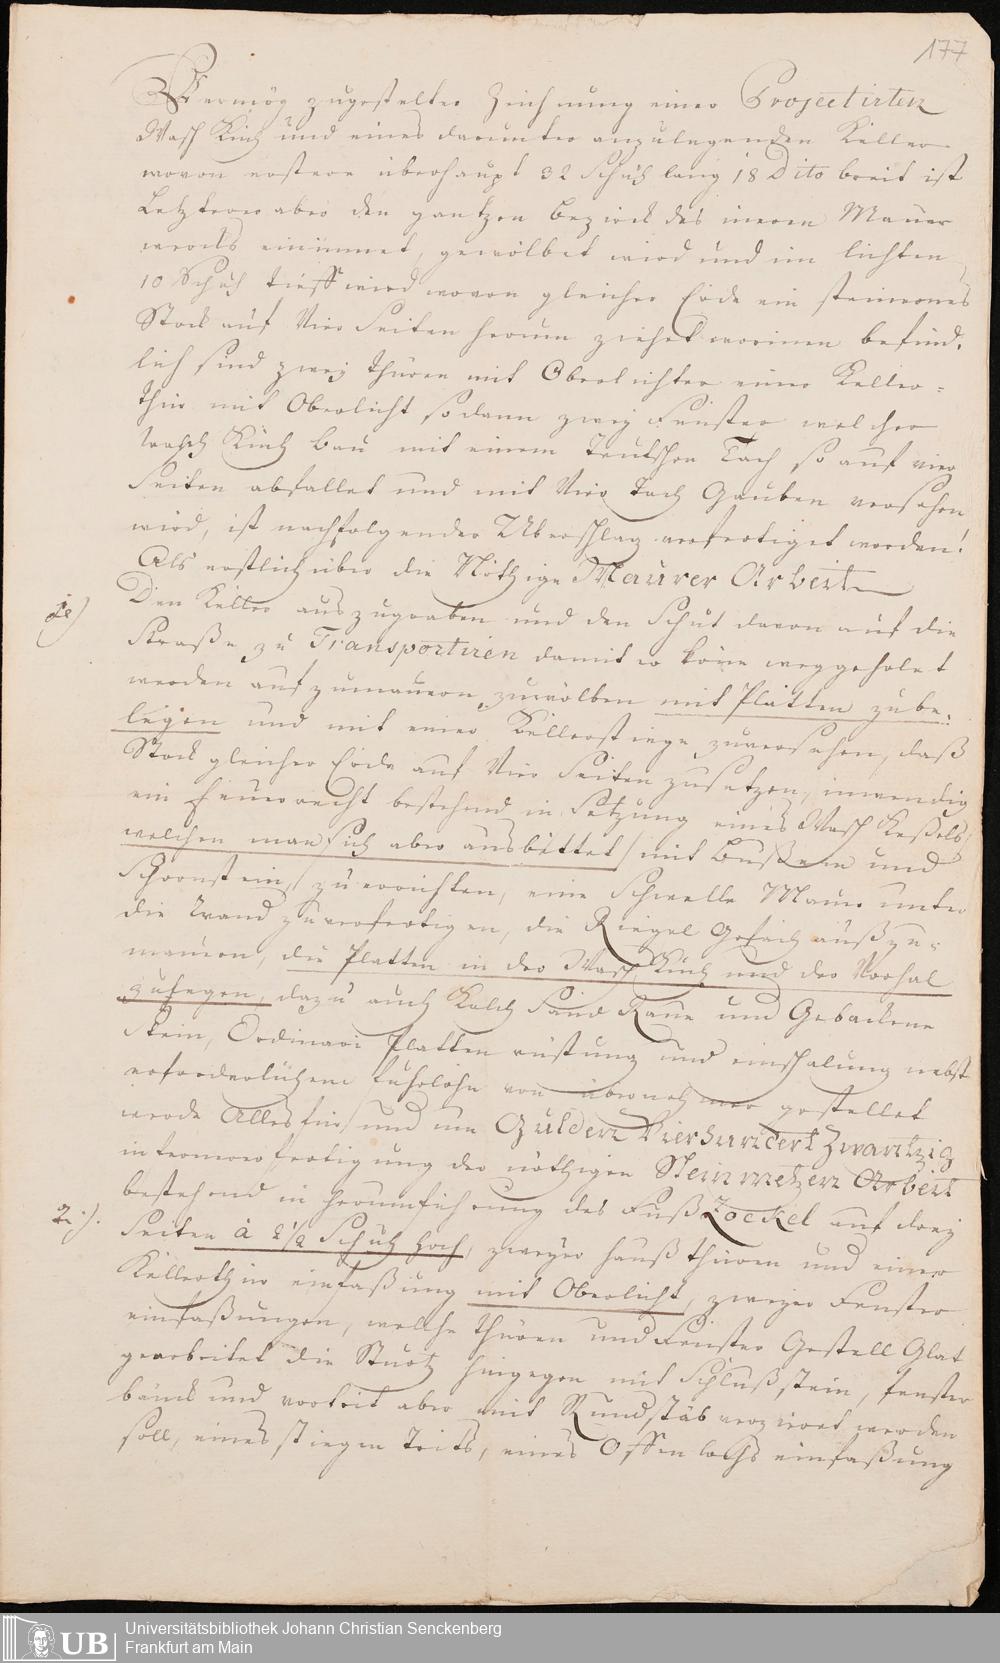 177
Vermög zugestelter Zeichnung einer Projectirten
Wasch Küch und eines darunter anzulegenden Keller
wovon erstere überhaupt 32 Schuh lang 18 Dito breit ist
Letzterer aber den gantzen bezirck des inern Mauer
wercks einimmet, gewölbet wird und im lichten
10 Schuh tieff wird wovon gleicher Erde ein steinernes
Stock auf Vier Seiten herum ziehet worinen befind-
lich sind zwey Thüren mit Oberlichter einer Keller-
Thür mit Oberlicht sodann zwey Fenster welcher
Wasch Küch Bau mit einem Teutschen Tach so auf vier
Seiten abfallet und mit Vier Tach Gauben versehen
wird, ist nachfolgender Uberschlag verfertiget worden!
Als erstlich über die Nöthige Maurer Arbeit
1e) Den Keller auszugraben und den Schut davon auf die
Straße zu Transportiren damit er köne weggeholet
werden aufzumauern, zuwölben mit Platten zube-
legen und mit einer Kellerstiege zuversehen, daß
Stock gleicher Erde auf Vier Seiten zusetzen, inwendig
ein Feuerrecht bestehend in Setzung eines Wasch Keßels
welchen man sich aber ausbittet / mit Bußem und
Schornstein, / zu errichten, eine Schwelle Mauer unter
die Wand zuverfertigen, die Riegel Gefach außzu-
mauren, die Platten in der Wasch Küch und der Vorhal
zulegen, dazu auch Kalch Sand Raue und Gebackene
Stein, Ordinari Platten rüstung und einschalung nebst
erforderlichem fuhrlohn von übernehmer gestellet
werde Alles für und um Gulden Vierhundert Zwantzig
2.). bestehend in herumführung des Fuß Zockel auf drey
Seiten à 2 1/2 Schuh hoch, zweyer Hauß thüren und einer
Kellerthür einfaßung mit Oberlicht, zweyer Fenster
einfaßungen, welche Thüren und Fenster Gestell Glat
gearbeitet die Sturtz hingegen mit Schlußstein, fenster
bänck und vortrit aber mit Rundstäb verzieret werden
soll, eines stiegen Trits, eines Offen lochs einfaßung
UB
Universitätsbibliothek Johann Christian Senckenberg
Frankfurt am Main